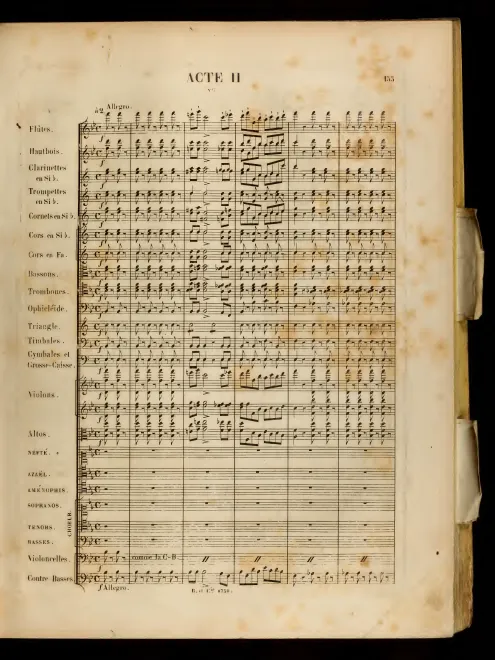 ACTE II
155
Allegro.
Flûtes.
Hautbois.
Clarinettes
en Si ♭.
Trompettes
en Si ♭.
Cornets en Si ♭.
Cors en Si ♭.
Cors en Fa.
Bassons.
Trombones.
Ophicléide.
Triangle.
Timbales.
Cymbales et
Grosse-Caisse.
Violons.
Altos.
NEFTÉ.
AZAËL.
AMÉNOPHIS.
SOPRANOS.
CHŒUR.
TENORS.
BASSES.
Violoncelles.
comme la C-B
Contre Basses.
f Allegro.
B. et Cie 8750.